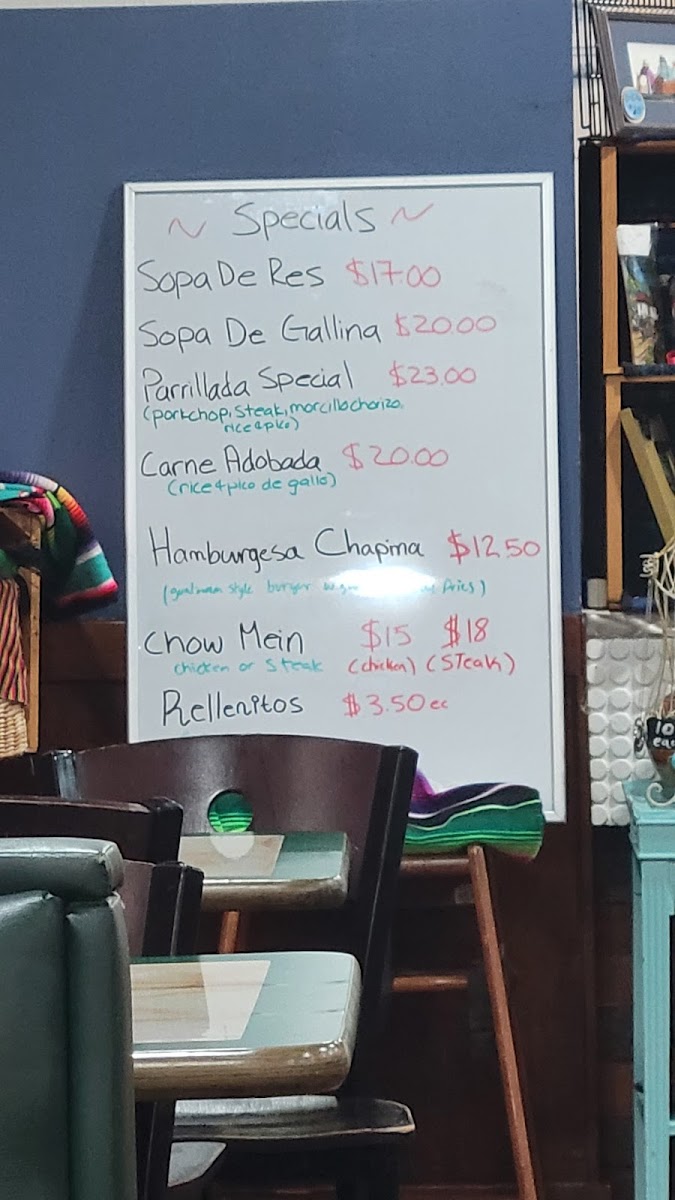 ~ Specials ~
Sopa De Res $17.00
Sopa De Gallina $20.00
Parrillada Special $23.00
(porkchop, steak, morcillo chorizo,
rice & pico)
Carne Adobada $20.00
(rice & pico de gallo)
Hamburgesa Chapina $12.50
style burger fries)
Chow Mein $15 $18
chicken or steak (chicken) (STeak)
Rellenitos $3.50 ec
10